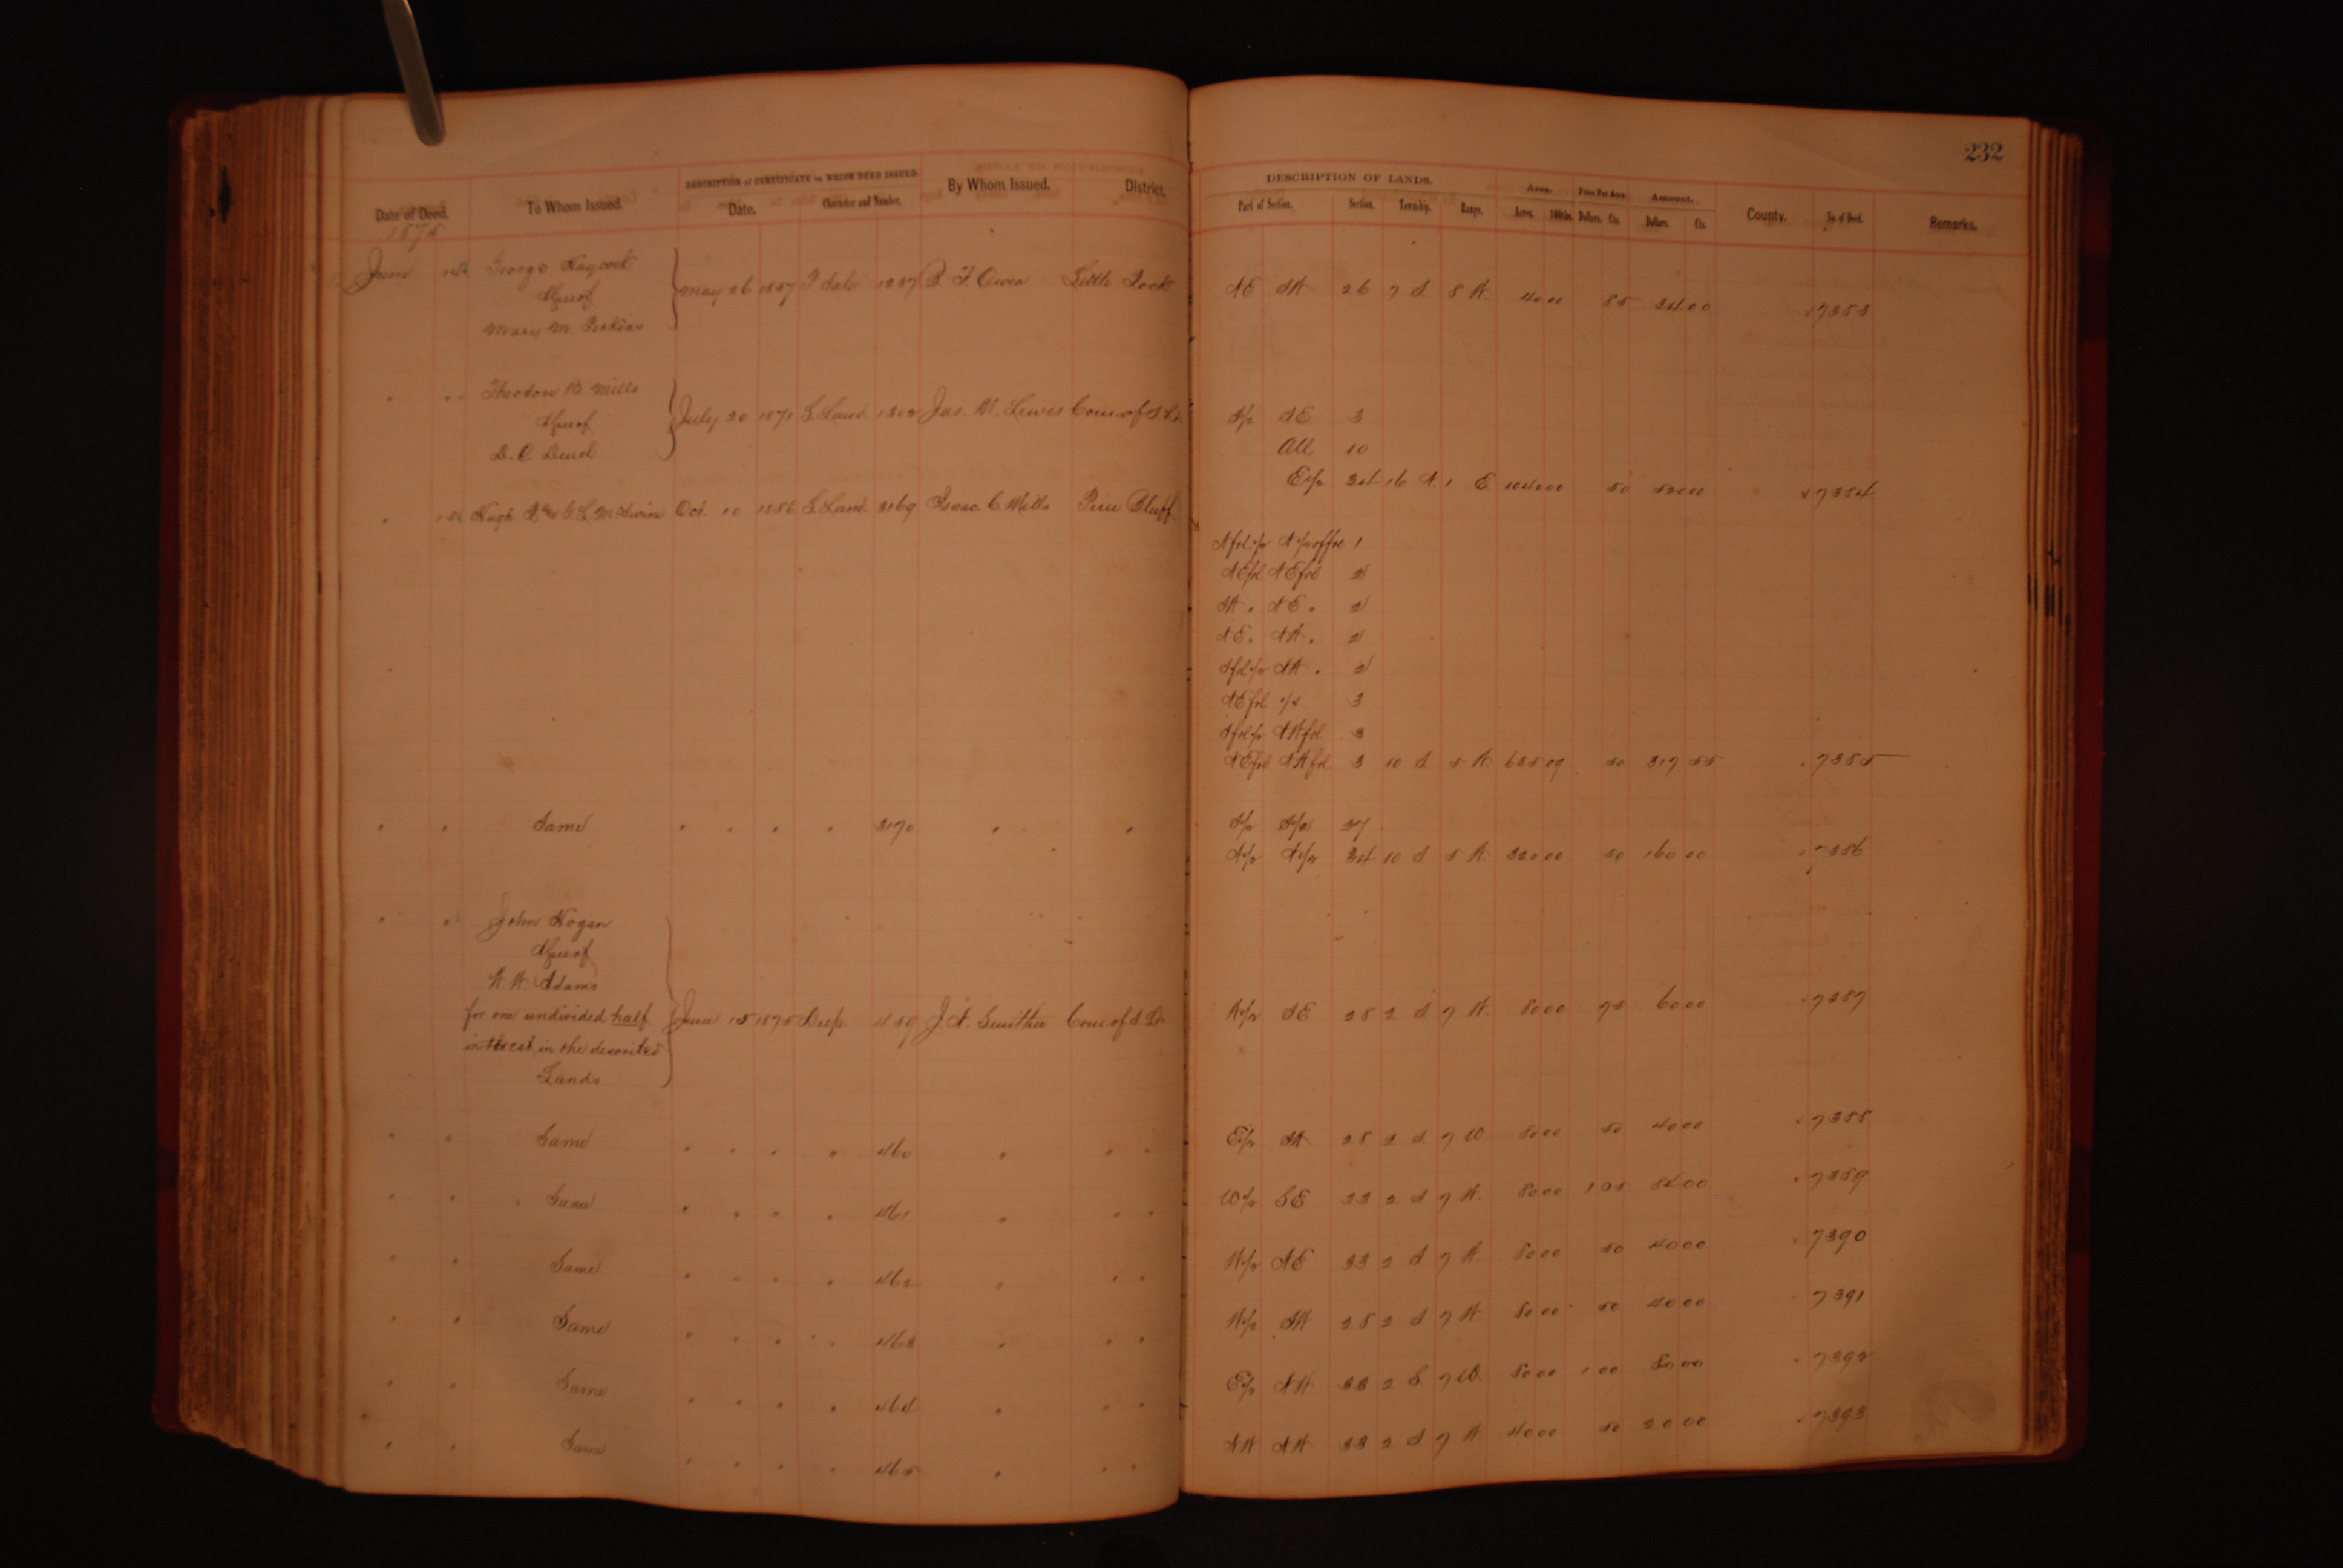 232
DESCRIPTION of CERTIFICATE on WHICH DEED ISSUED. DESCRIPTION OF LANDS. Area. Price Per Acre. Amount.
Date of Deed. To Whom Issued. Date. Character and Number. By Whom Issued. District. Part of Section. Section. Township. Range. Acres. 100ths. Dollars. Cts. Dollars. Cts. County. No. of Deed. Remarks.
1875
June George Haycock
May 26 1857 1237 B. F. Owen Little Rock NE SW 26 7 S 8 W. 40 00 85 34 00 7383
Mary M. Perkins
" " Theodore B. Mills
July 20 1871 S. Land. 1302 Jas. M. Lewis Com. of S. L. S/2 SE 3
D. C. Deuel All 10
E/2 34 16 N. 1 E 1040 00 50 520 00 7384
" Hugh L. M. Oct. 10 1856 S. Land. 3169 Isaac C. Mills Pine Bluff
1
NE frl NE frl 2
SW " NE " 2
NE " NW " 2
S frl 1/2 SW " 2
NE frl 1/4 3
S frl 1/2 NW frl 3
NE frl NW frl 3 10 S. 5 W. 635 09 50 317 55 7385
" " Same " " " " 3170 " " S/2 S/2 27
N/2 N/2 34 10 S 5 W. 320 00 50 160 00 7386
" " John Hogan
W. W. Adams
for one undivided half June 15 1875 459 J. N. Smithee Com. of S. L. W/2 SE 28 2 S 7 W. 80 00 75 60 00 7387
interest in the described
Lands
" " Same " " " " 460 " " " E/2 SW 28 2 S. 7 W. 80 00 50 40 00 7388
" " Same " " " " 461 " " " W/2 SE 33 2 S 7 W. 80 00 1 05 84 00 7389
" " Same " " " " 462 " " " W/2 NE 33 2 S 7 W. 80 00 50 40 00 7390
" " Same " " " " 463 " " " W/2 SW 28 2 S 7 W. 80 00 50 40 00 7391
" " Same " " " " 464 " " " E/2 NW 33 2 S 7 W. 80 00 1 00 80 00 7392
" " Same " " " " 465 " " " NW NW 33 2 S. 7 W 40 00 50 20 00 7393